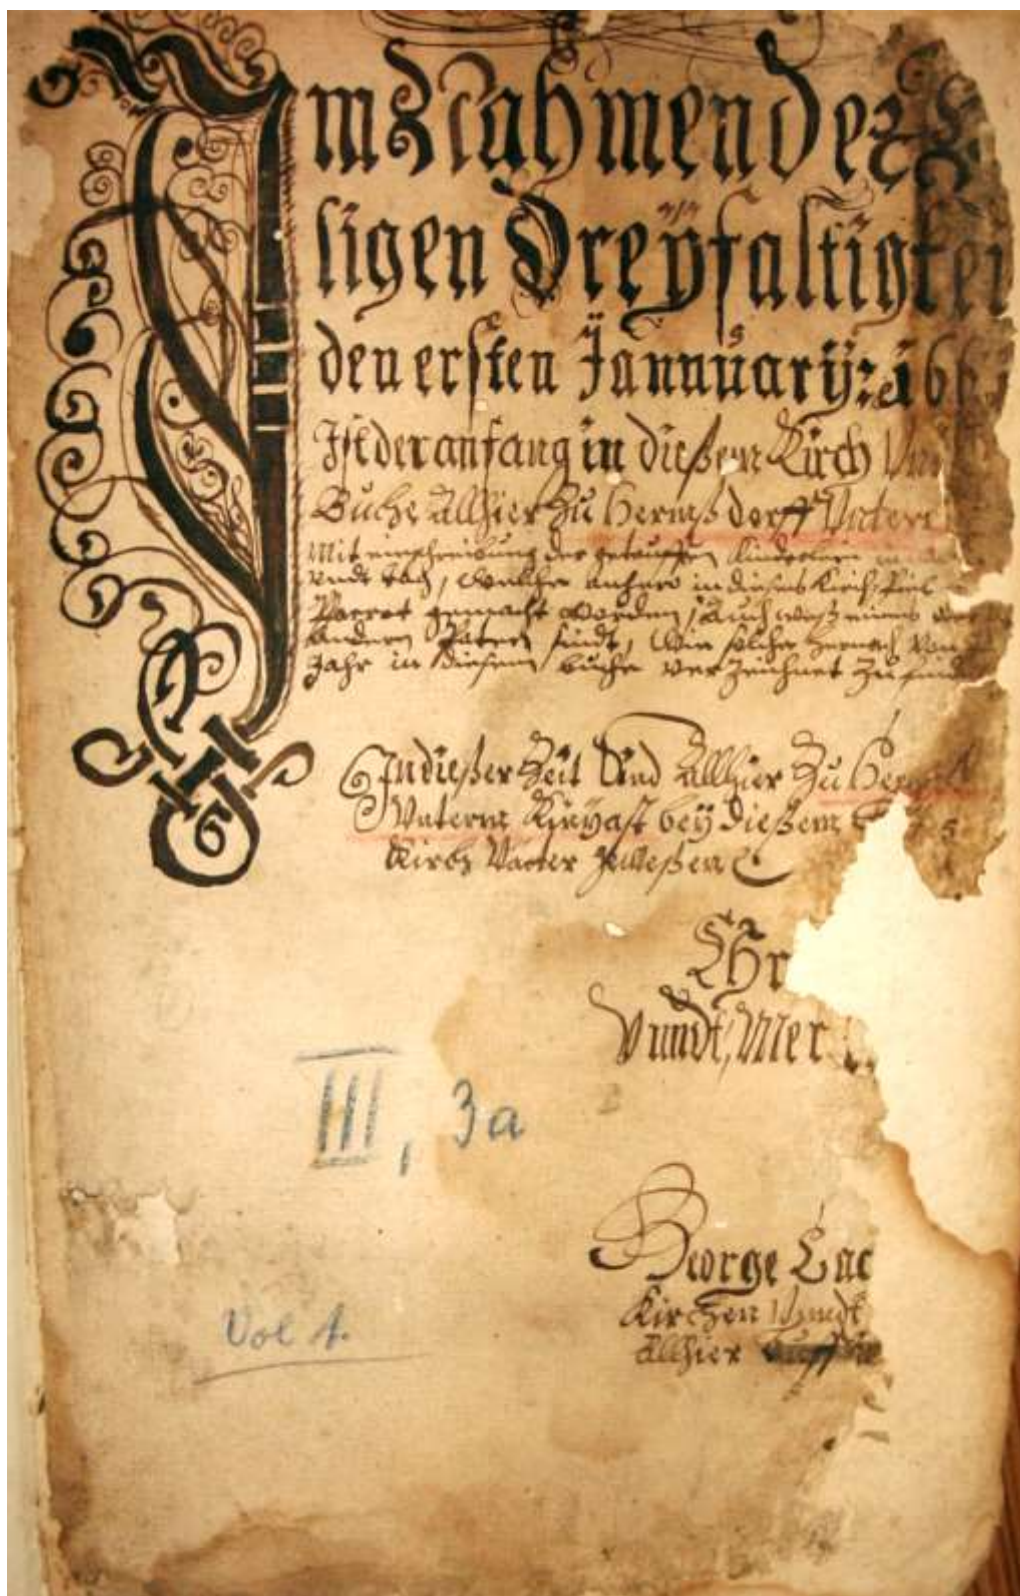 Im Nahmen der
ligen Dreyfaltigkei
den ersten Jannuarij: 16
Ist der anfang in dießem Kirch Vn
Buche Allhier Zu Hermßdorff Vnterm
Mit einschreibung der getaufften Kinderlein
Vndt Tag, Welcher anhero in dieses Kirch
gemacht worden, Auch
Andern Paten sindt, Wie solches hernach Von
Jahr in diesem buche Verzeichnet Zu find
In dießer Zeit Sind Allhier Zu Hermß
Vnterm Kinast bey dießem
Kirch Vater geweßen
Chr
Vnndt, Mer
III, 3a
George Lac
Kirchen Vnndt
Allhier
Vol 1.